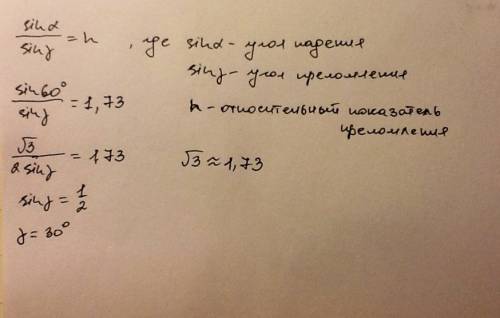 sinα/sinγ = n , где sinα - угол падения
sinγ - угол преломления
sin60°/sinγ = 1,73
n - относительный показатель
преломления
√3/2sinγ = 1,73
√3 ≈ 1,73
sinγ = 1/2
γ = 30°